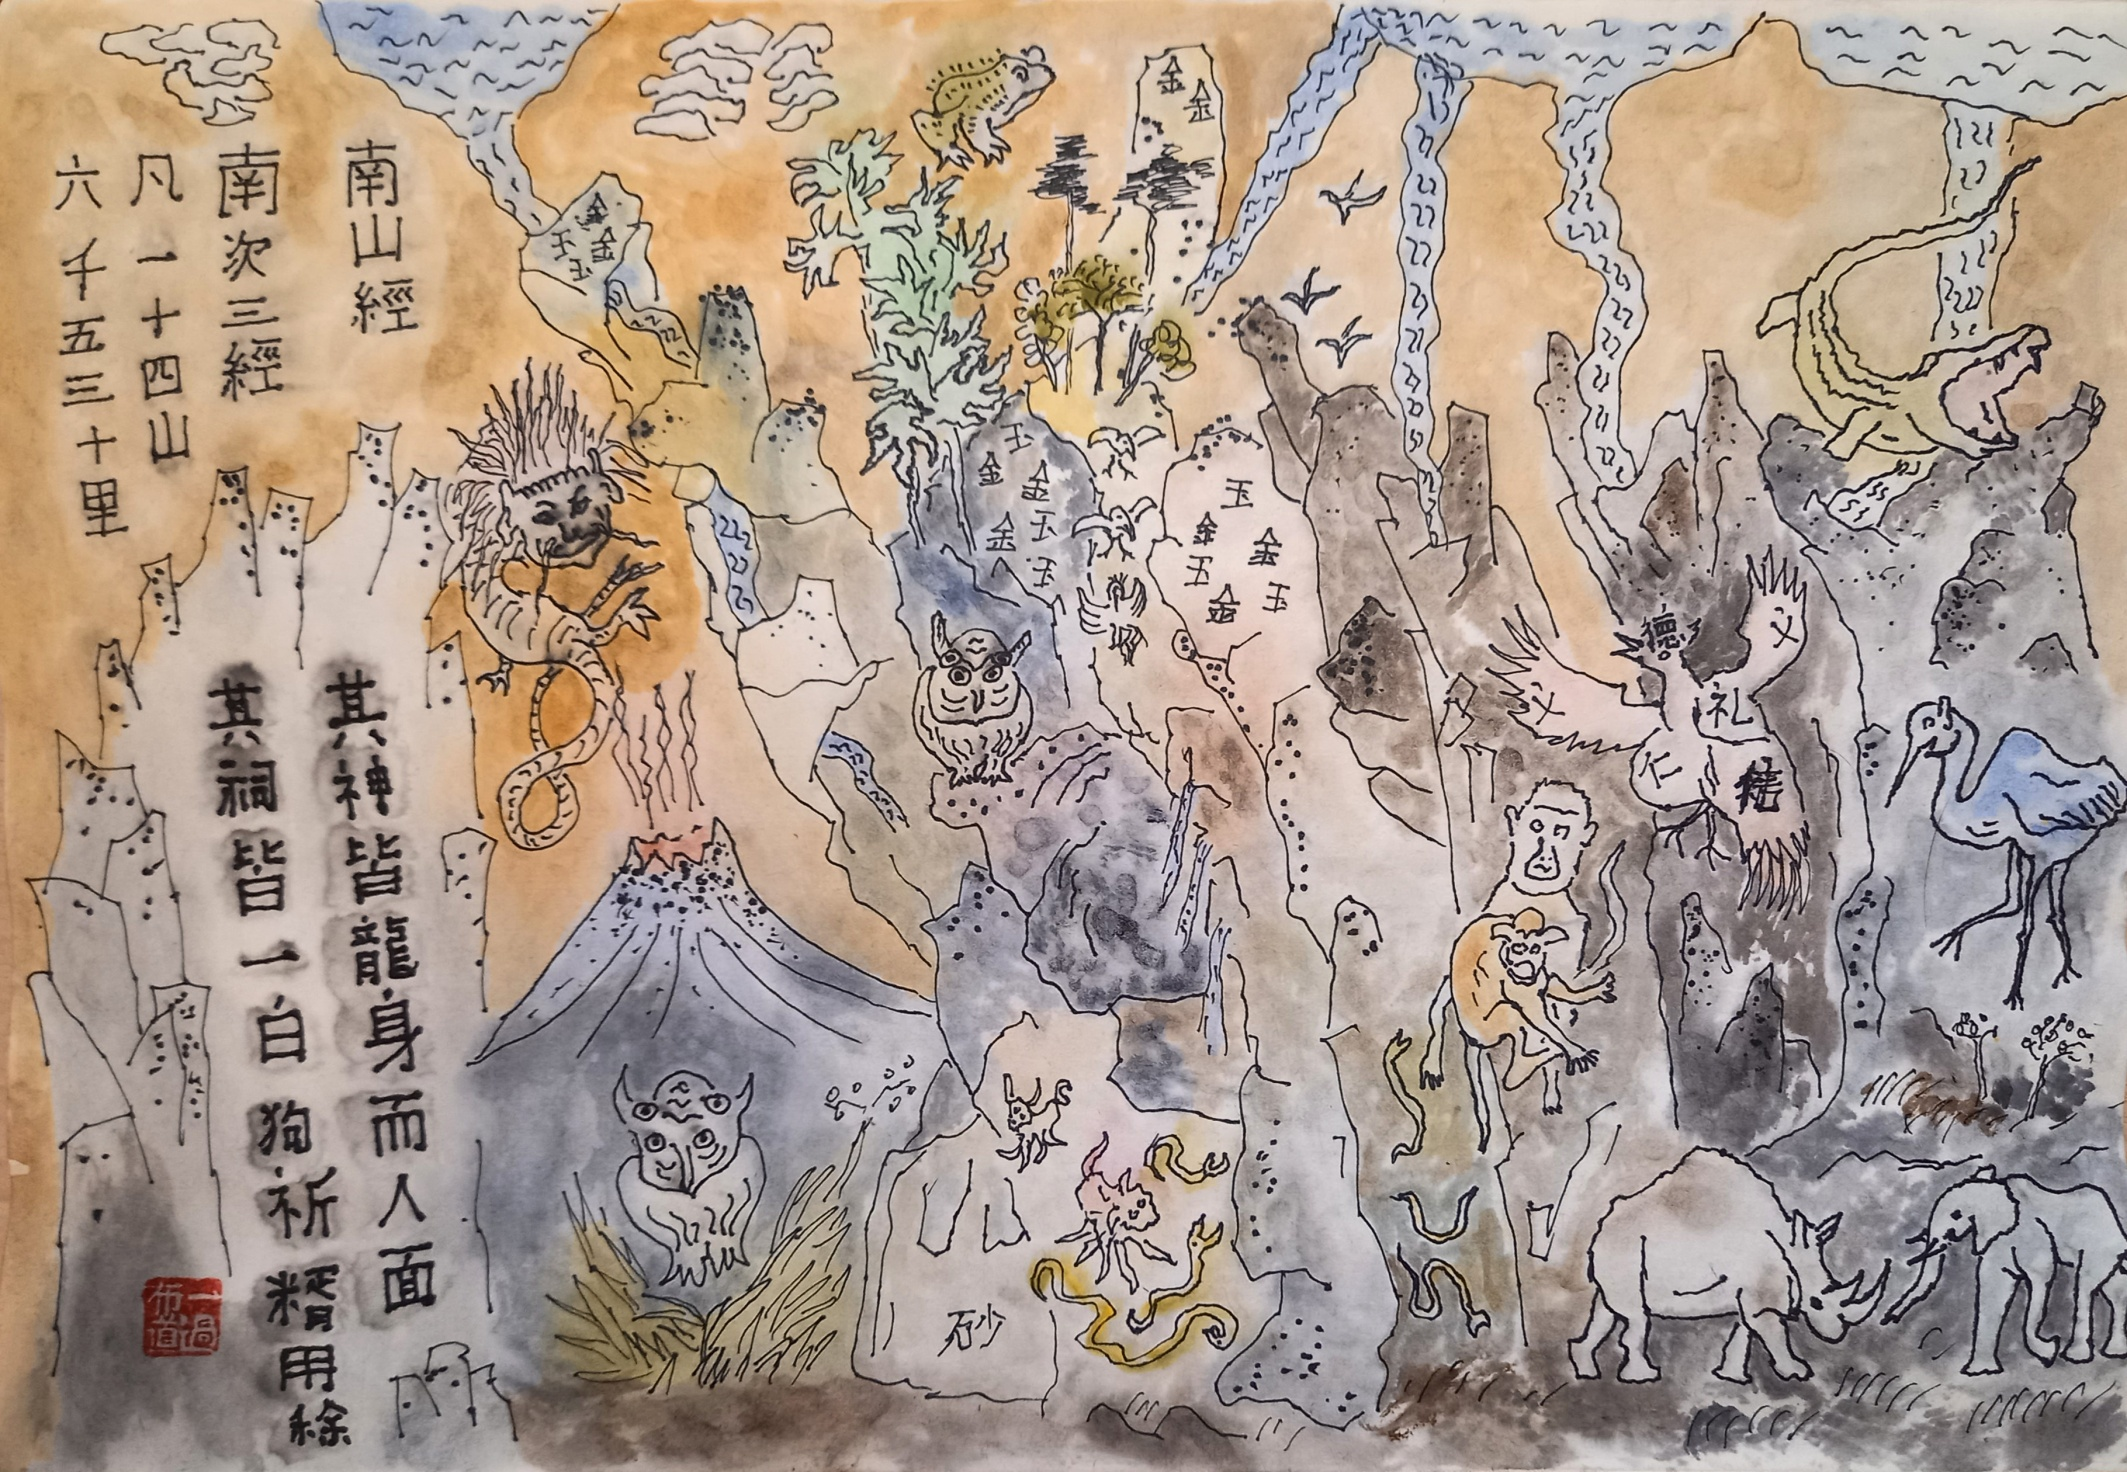 南山經
南次三經
凡一十四山
六千五三十里
其神皆龍身而人面
其祠皆一白狗祈糈用稌
金
金
金
玉
金
玉
玉
金
金
玉
金
玉
玉
金
金
玉
金
玉
德
礼
仁
砂